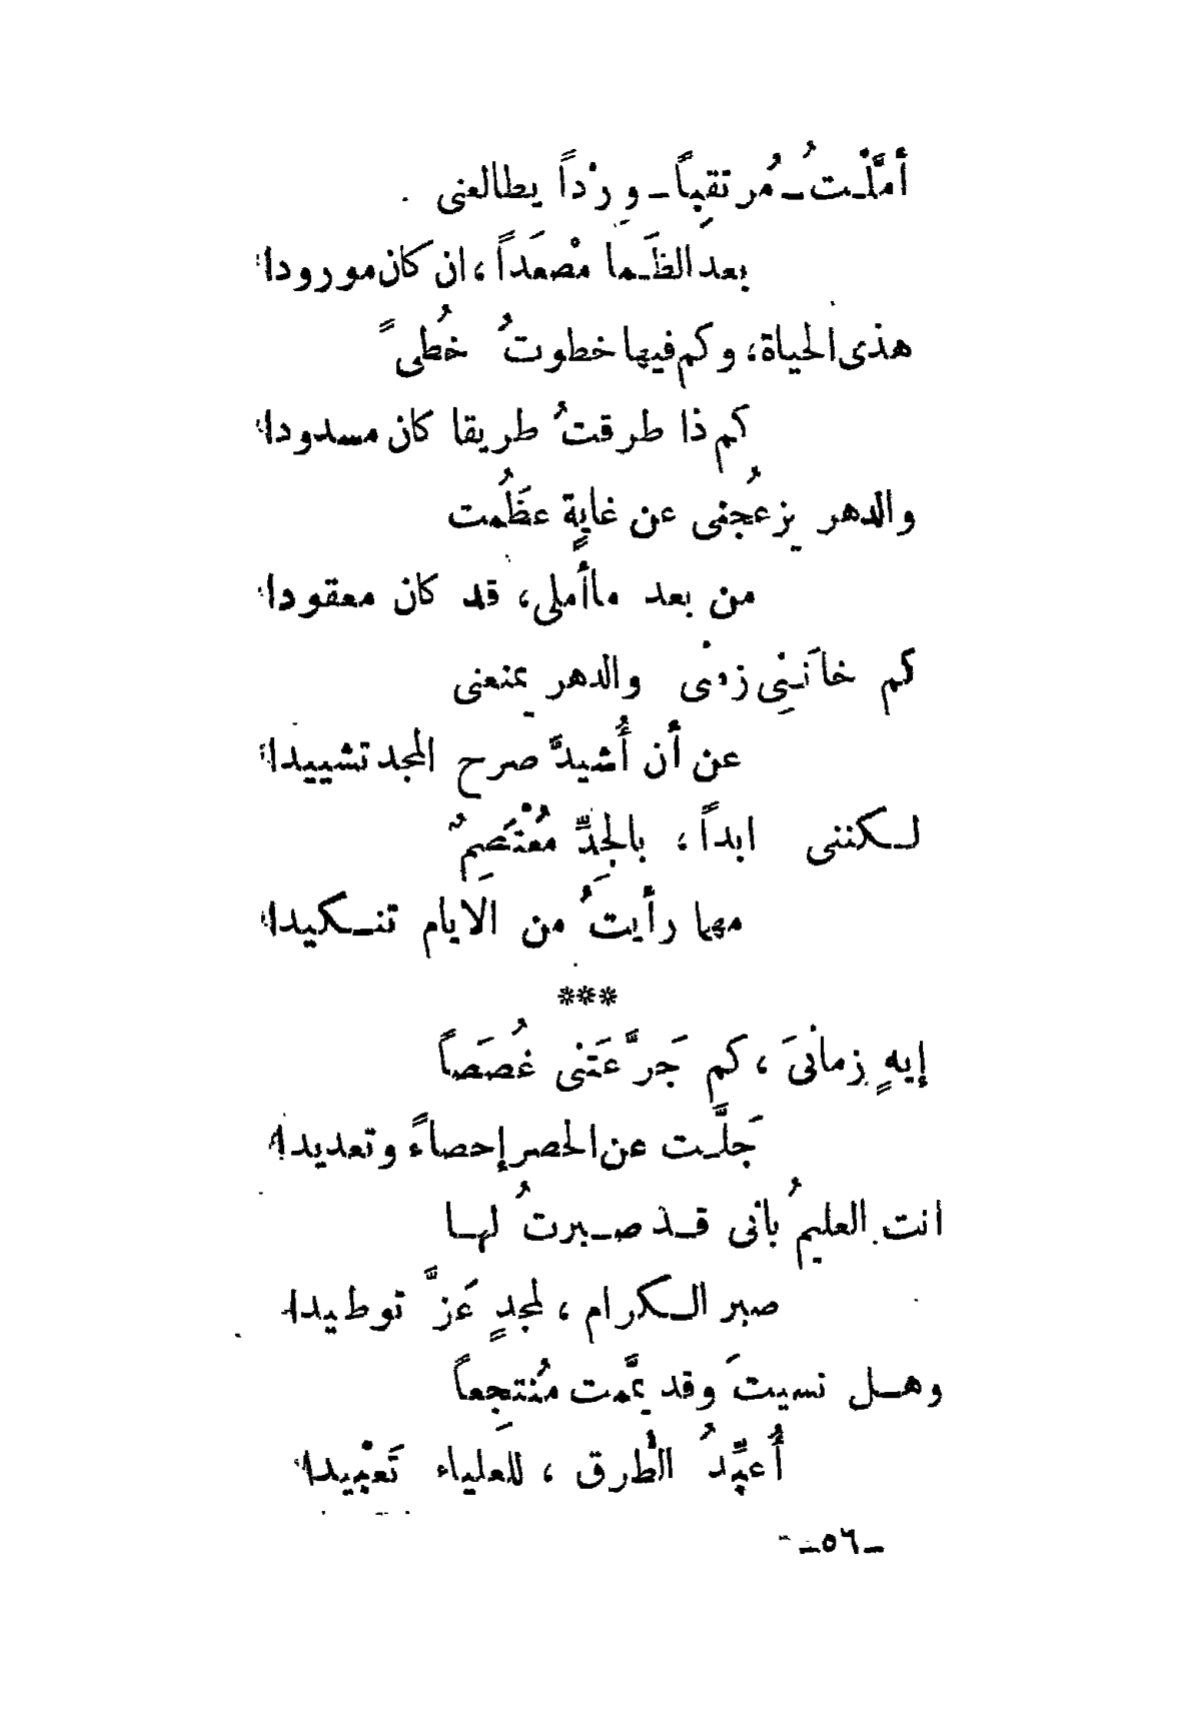 أمَّلْتُ ـ مُرتقِباً ـ وِرْداً يطالعنى
بعدَ الظَما مْصعَداً، ان كان مورودا
هذى الحياة، وكم فيها خطوتُ خُطىً
كم ذا طرقتُ طريقا كان مسدودا
والدهر يزعُجنى عن غايةٍ عظَُمت
من بعد ماأملى، قد كان معقودا
كم خانَنِى زمنى والدهر يمنعنى
عن أن أُشيدَّ صرح المجد تشييدا
لكننى ابداً، بالجِدِّ مُعْتَصِمٌ
مهما رأيتُ من الايام تنكيدا
***
إيهٍ زمانىَ، كم جَرَّعَتنى غُصَصاً
جَلَّت عن الحصر إحصاءً وتعديدا
انت العليمُ بانى قد صبرتُ لها
صبر الكرام، لمجدٍ عَزَّ توطيدا
وهل نسيتَ وقد يمَّمت مُنتجِعاً
أُعبِّدُ الطُرق، للعلياء تَعبْيدا
ـ ٥٦ ـ